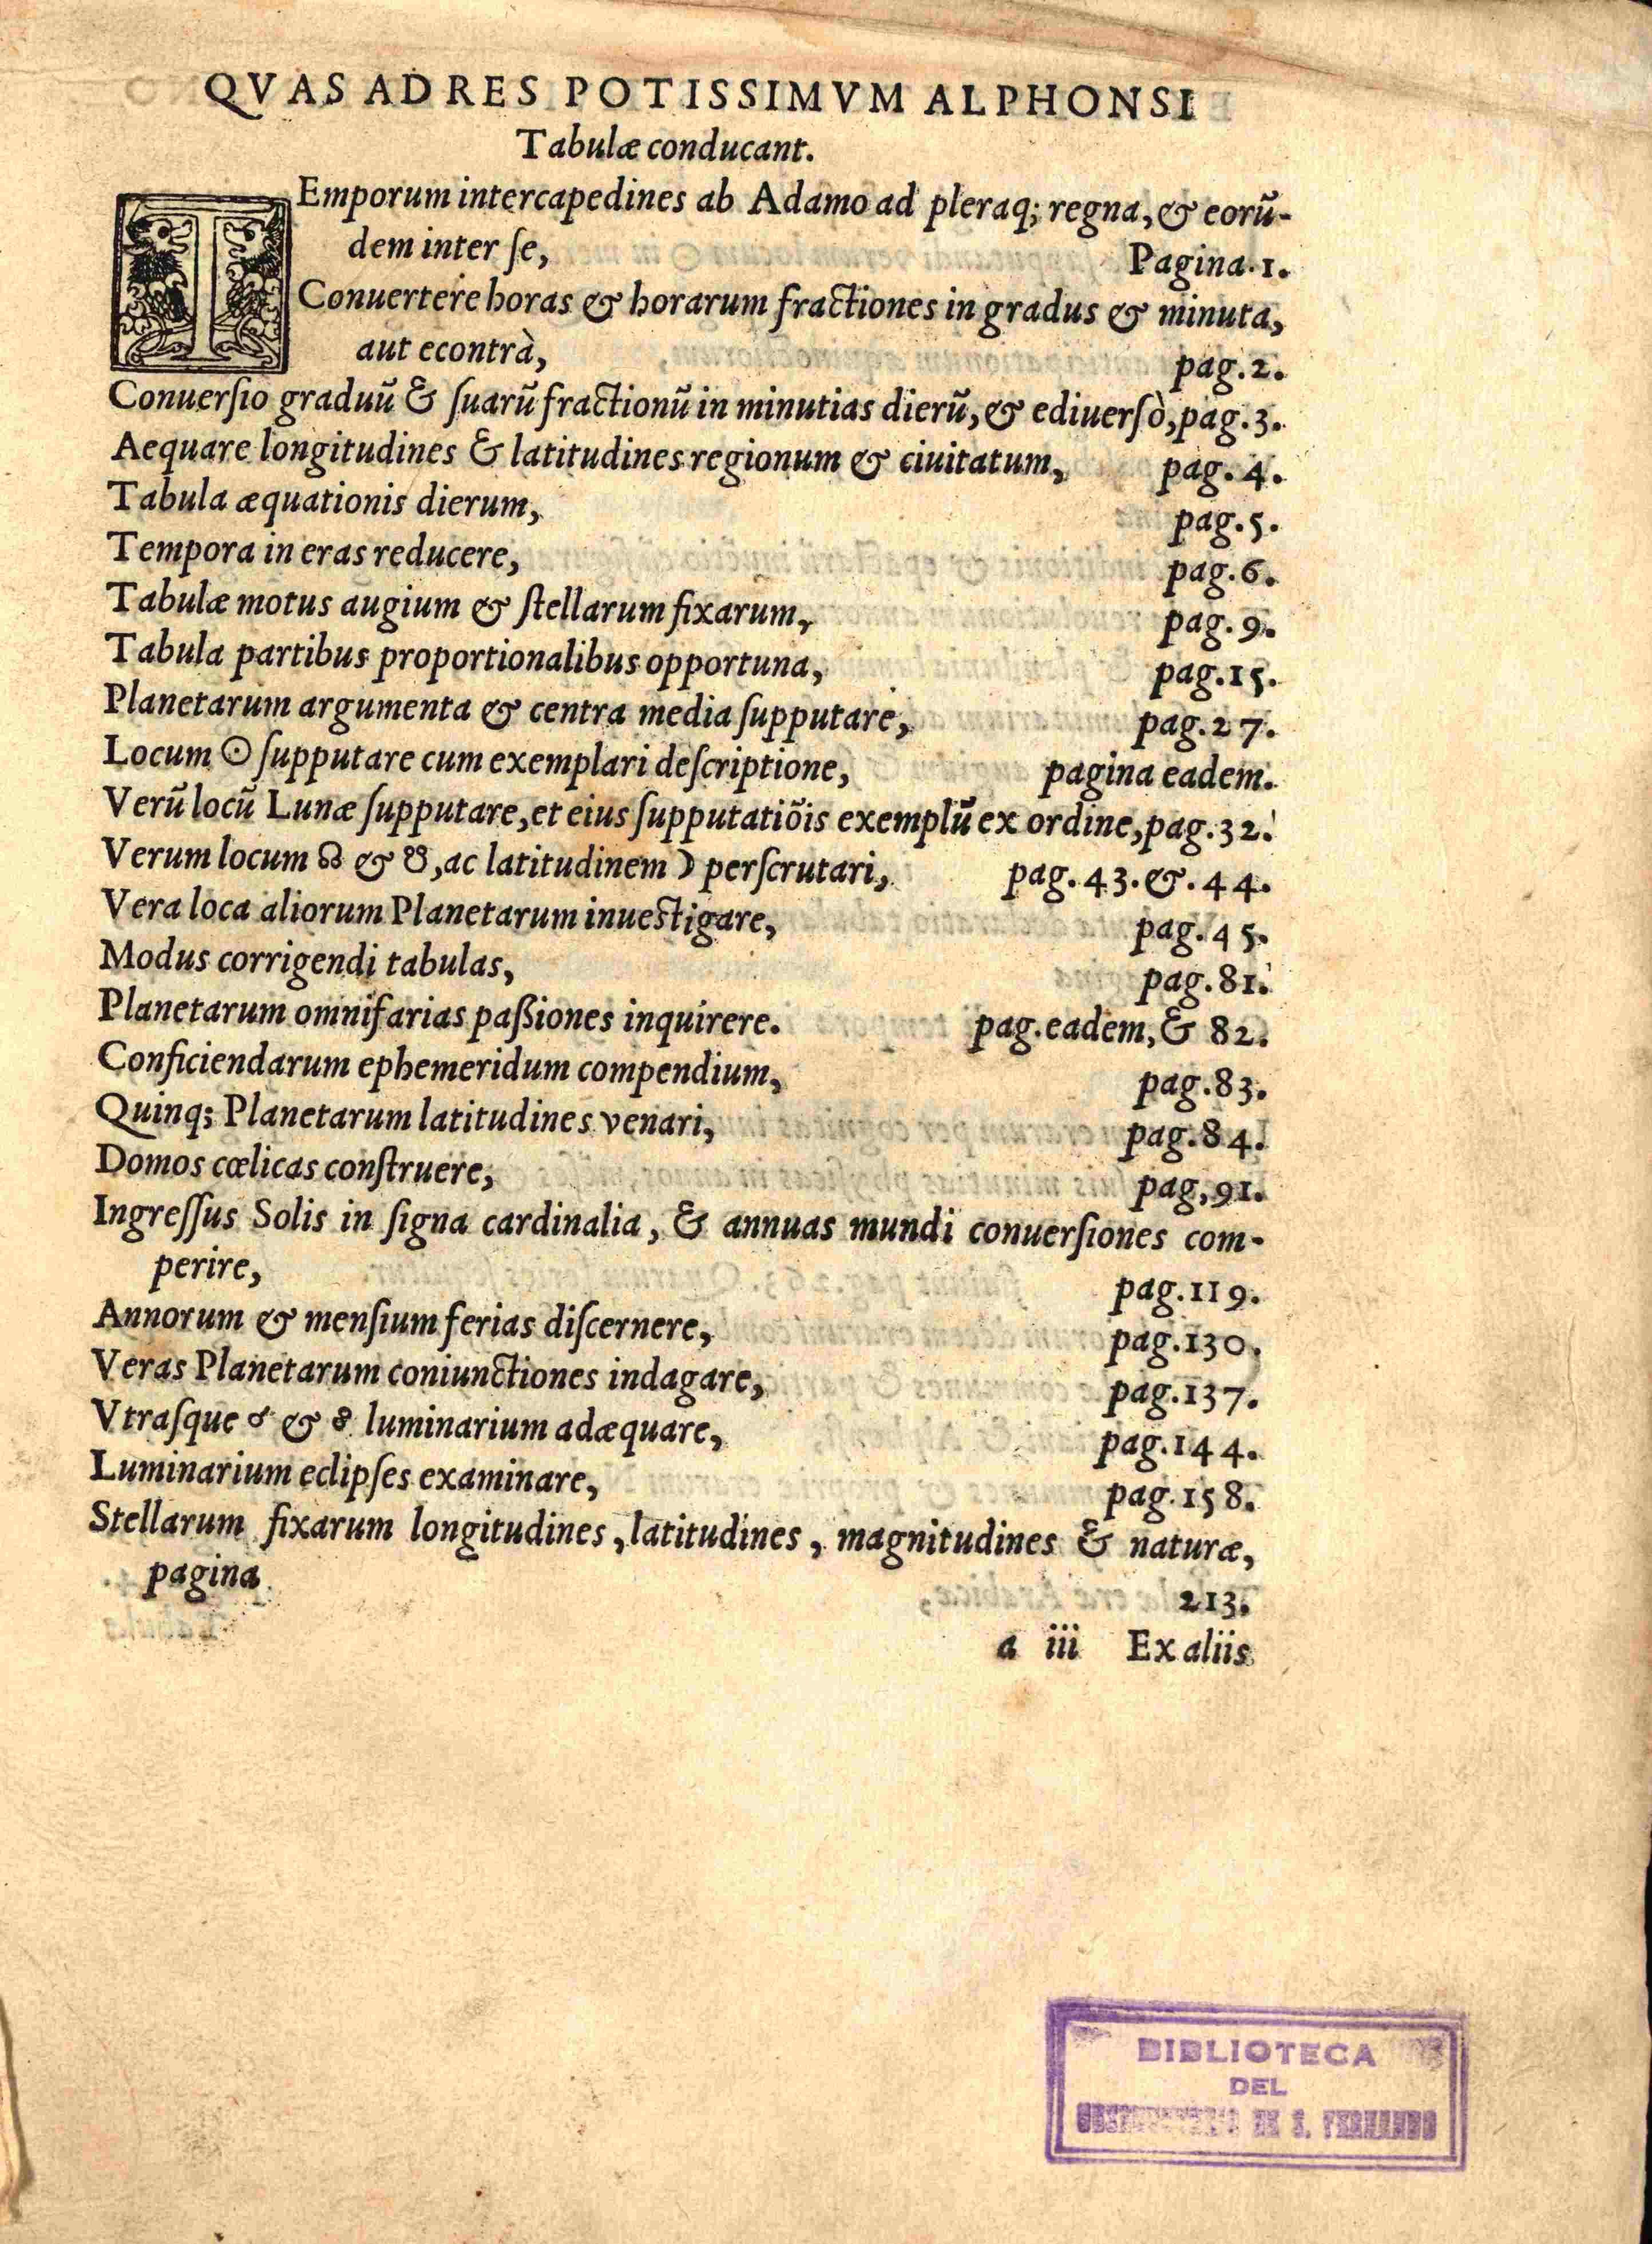 QVAS AD RES POTISSIMVM ALPHONSI
Tabulæ conducant.
TEmporum intercapedines ab Adamo ad pleraq; regna, & eorũ-
dem inter ſe, Pagina.1.
Conuertere horas & horarum fractiones in gradus & minuta,
aut econtrà, pag.2.
Conuerſio graduũ & ſuarũ fractionũ in minutias dierũ, & ediuerſò, pag.3.
Aequare longitudines & latitudines regionum & ciuitatum, pag.4.
Tabula æquationis dierum, pag.5.
Tempora in eras reducere, pag.6.
Tabulæ motus augium & ſtellarum fixarum, pag.9.
Tabula partibus proportionalibus opportuna, pag.15.
Planetarum argumenta & centra media ſupputare, pag.27.
Locum ☉ ſupputare cum exemplari deſcriptione, pagina eadem.
Verũ locũ Lunæ ſupputare, et eius ſupputatiõis exemplũ ex ordine, pag.32.
Verum locum ☊ & ☋, ac latitudinem ☽ perſcrutari, pag.43.&.44.
Vera loca aliorum Planetarum inueſtigare, pag.45.
Modus corrigendi tabulas, pag.81.
Planetarum omnifarias paßiones inquirere. pag.eadem, & 82.
Conficiendarum ephemeridum compendium, pag.83.
Quinq; Planetarum latitudines venari, pag.84.
Domos cœlicas conſtruere, pag,91.
Ingreſſus Solis in ſigna cardinalia, & annuas mundi conuerſiones com-
perire, pag.119.
Annorum & menſium ferias diſcernere, pag.130.
Veras Planetarum coniunctiones indagare, pag.137.
Vtraſque ☌ & ☍ luminarium adæquare, pag.144.
Luminarium eclipſes examinare, pag.158.
Stellarum fixarum longitudines, latitudines, magnitudines & naturæ,
pagina 213.
a iii Ex aliis
BIBLIOTECA
DEL
OBSERVATORIO DE S. FERNANDO